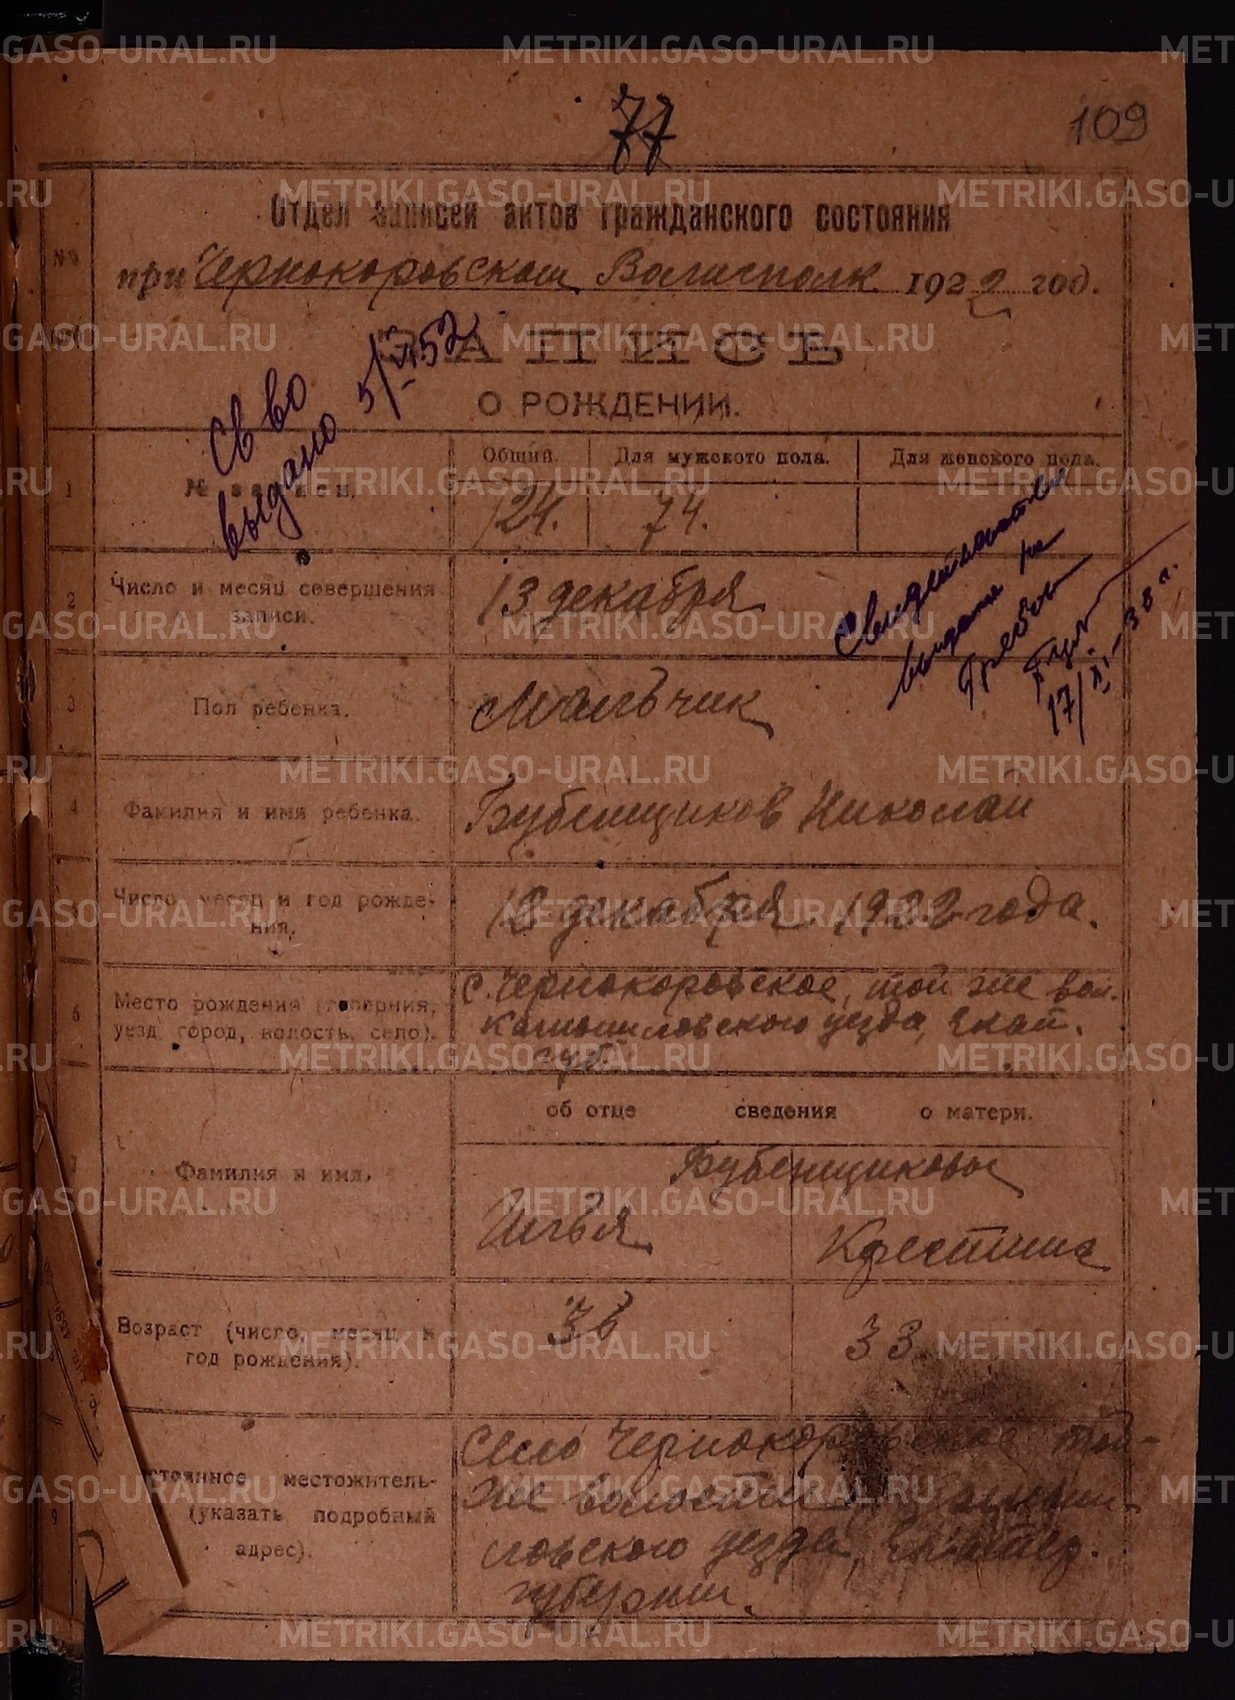 77
109
Отдел записей актов гражданского состояния
при Чернокоровском Волисполк 1922 год.
ЗАПИСЬ
О РОЖДЕНИИ.
Св во
выдано 5/VI 52
Общий. Для мужского пола. Для женского пола.
1 № записи. 124. 74.
Свидетельство
выдано на
17/XI-38 г.
2 Число и месяц совершения
записи. 13 декабря
3 Пол ребенка. Мальчик
4 Фамилия и имя ребенка. Бубенщиков Николай
Число, месяц и год рожде-
ния. 12 декабря 1922 года.
6 Место рождения (губерния,
уезд, город, волость, село).
с. Чернокоровское, той же вол.
Камышловского уезда, Екат.
губ.
об отце сведения о матери.
7 Фамилия и имя.
Бубенщиковы
Илья Крестина
Возраст (число, месяц и
год рождения). 36 33.
9 стоянное местожитель-
(указать подробный
адрес).
Село Чернокоровское той-
же волости Камыш-
ловского уезда, Екатер.
губернии.
METRIKI.GASO-URAL.RU